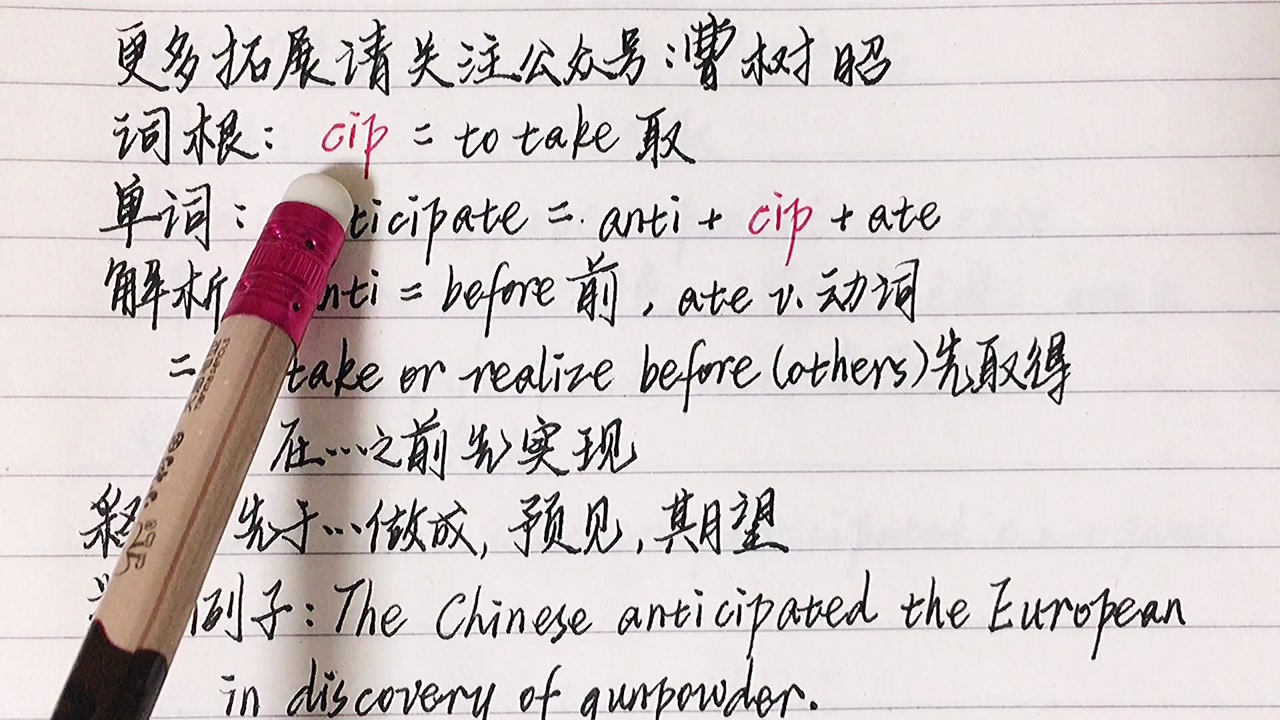 更多拓展请关注公众号:曹树昭
词根: cip = to take 取
单词: ticipate = anti + cip + ate
解析 nti = before 前, ate v. 动词
= take or realize before (others) 先取得
在…之前先实现
释 先于…做成, 预见, 期望
例子: The Chinese anticipated the European
in discovery of gunpowder.